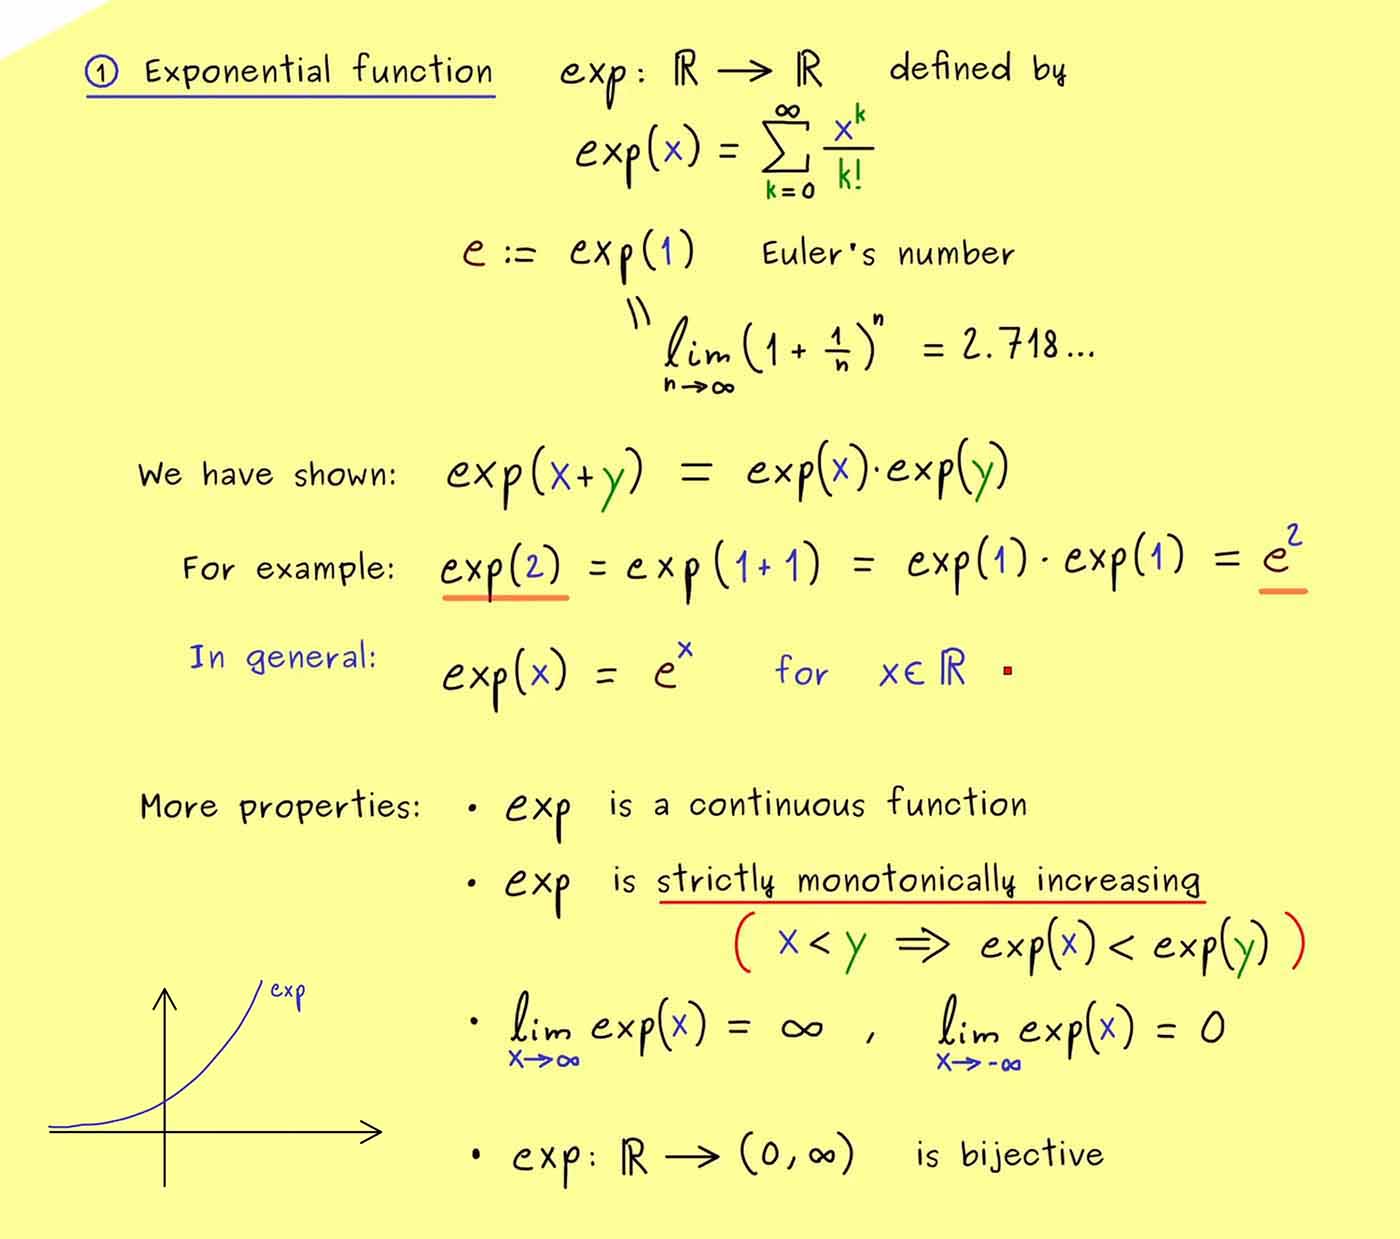 ① Exponential function exp: ℝ → ℝ defined by
exp(x) = ∑_{k=0}^{∞} x^k / k!
e := exp(1) Euler's number
|| lim_{n→∞} (1 + 1/n)^n = 2.718...
We have shown: exp(x+y) = exp(x)·exp(y)
For example: exp(2) = exp(1+1) = exp(1)·exp(1) = e²
In general: exp(x) = e^x for x∈ℝ
More properties: • exp is a continuous function
• exp is strictly monotonically increasing
( x < y ⇒ exp(x) < exp(y) )
exp
• lim_{x→∞} exp(x) = ∞ , lim_{x→-∞} exp(x) = 0
• exp: ℝ → (0, ∞) is bijective